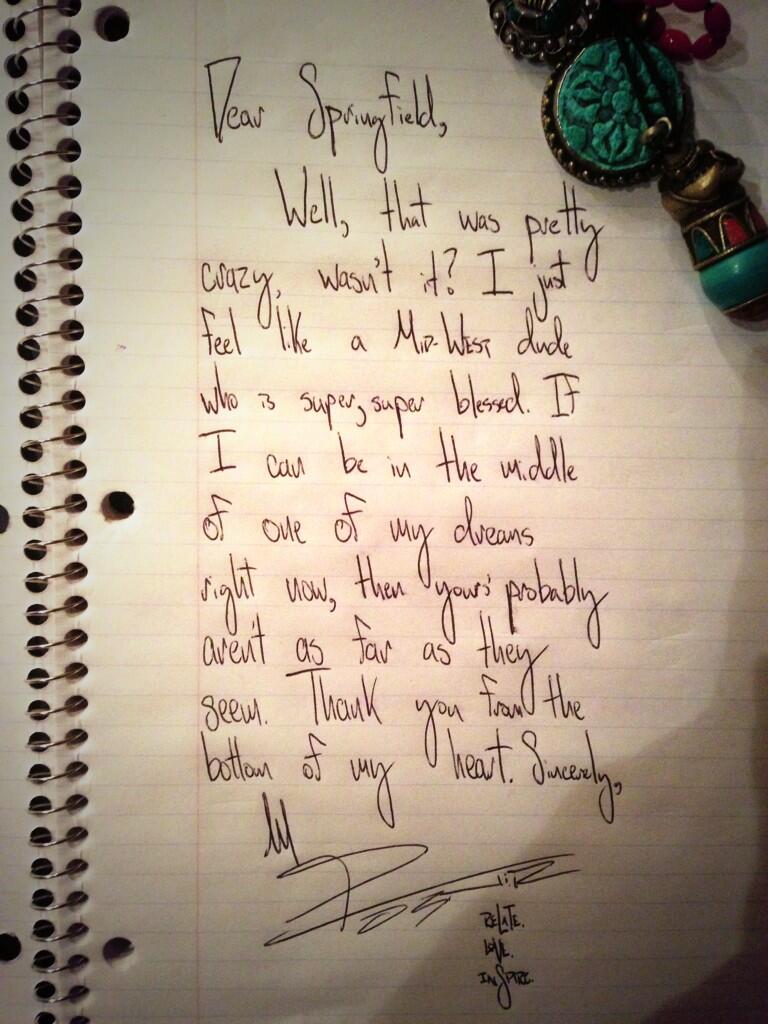 Dear Springfield,
Well, that was pretty
crazy, wasn't it? I just
feel like a Mid-West dude
who is super, super blessed. If
I can be in the middle
of one of my dreams
right now, then yours' probably
aren't as far as they
seem. Thank you from the
bottom of my heart. Sincerely,
RELATE.
LOVE.
INSPIRE.